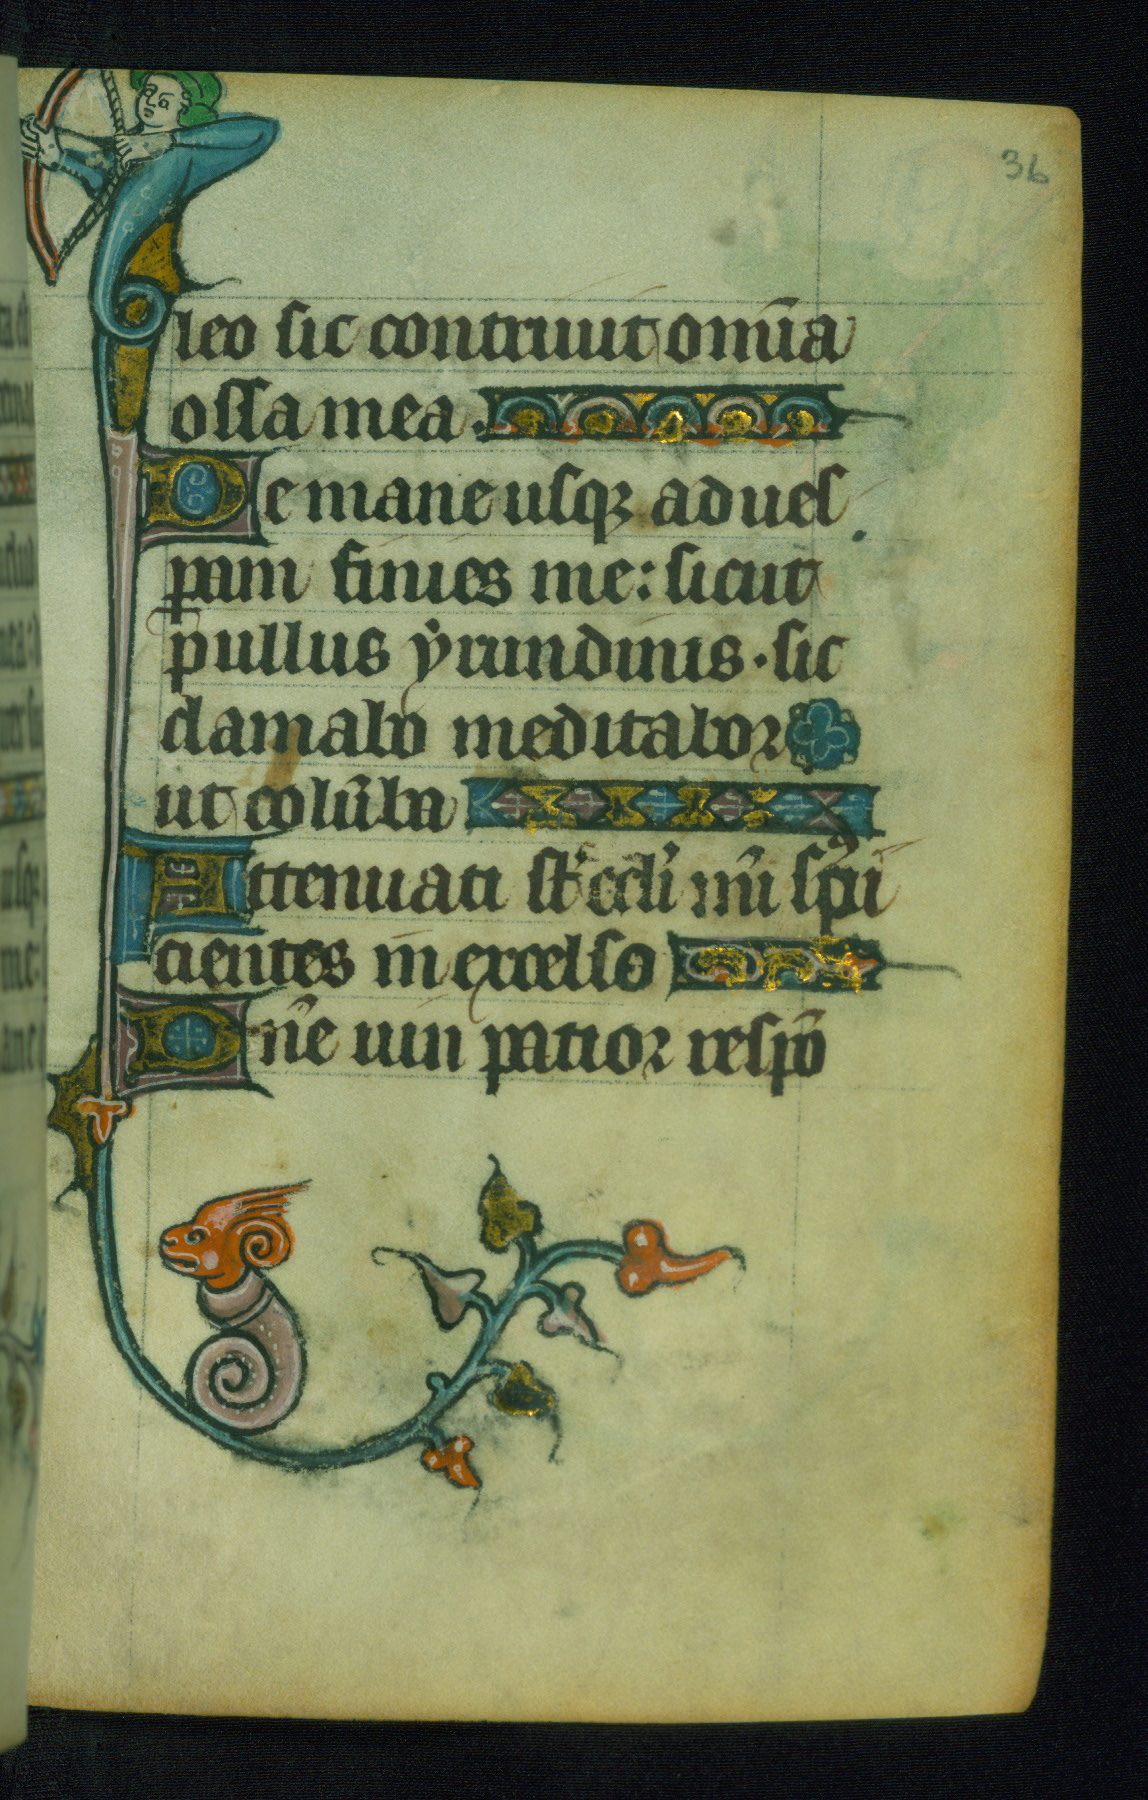 36
leo sic contriuit om̄ia
ossa mea.
De mane usqꝫ ad ues
pam finies me: sicut
pullus ẏrundinis · sic
clamabo meditabor
ut colūba
Attenuati st̄ oc̄li mī sꝑi
cientes in excelso
Dn̄e uim patior respō